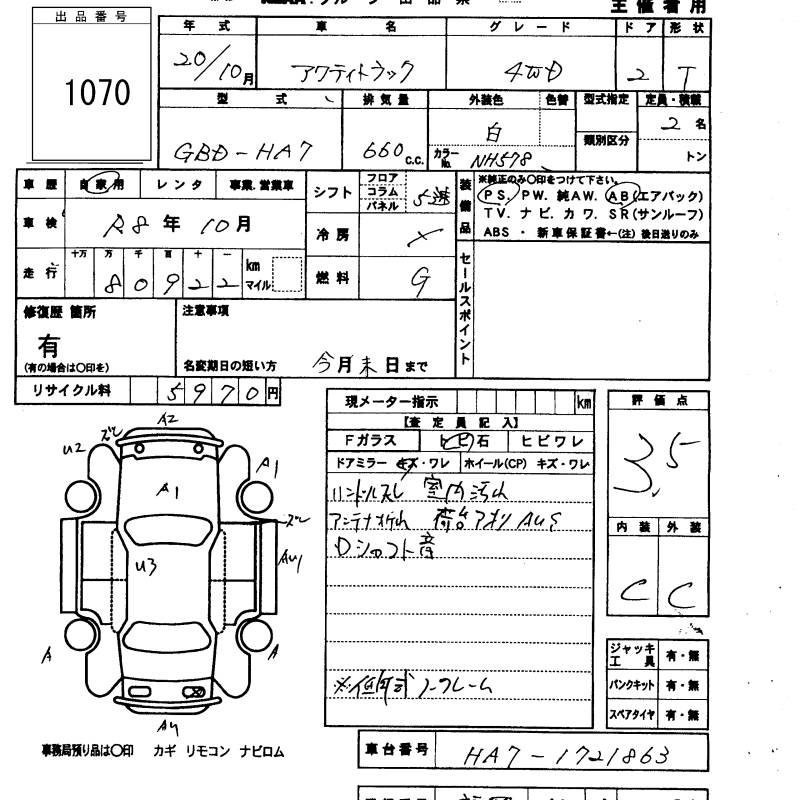 主催者用
出品番号
1070
年式 車名 グレード ドア 形状
20/10月 アクティトラック 4WD 2 T
型式 排気量 外装色 色替 型式指定 定員・積載
類別区分
GBD-HA7 660c.c. 白 カラーNo. NH578 2名
トン
車歴 自家用 レンタ 事業.営業車 シフト フロア コラム パネル 5速
車検 R8年10月 冷房 ×
走行 十万 万 千 百 十 一
80922 km マイル 燃料 G
装備品 ※純正のみ〇印をつけて下さい。
PS. PW. 純AW. AB(エアバック)
TV. ナビ. カワ. SR(サンルーフ)
ABS ・ 新車保証書←(注) 後日送りのみ
セールスポイント
修復歴 箇所
有
(有の場合は〇印を)
注意事項
名変期日の短い方 今月末日まで
リサイクル料 5970円
現メーター指示 km
【査定員記入】
Fガラス トビ石 ヒビワレ
ドアミラー キズ・ワレ ホイール(CP) キズ・ワレ
ハンドルスレ 室内汚れ
アンテナオレ 荷台アオリ AUS
Dシャフト音
ノーフレーム
評価点
3.5
内装 外装
C C
ジャッキ工具 有・無
パンクキット 有・無
スペアタイヤ 有・無
A2
ズレ
U2
A1
A1
ズレ
U3
AU1
A
A
事務局預り品は〇印 カギ リモコン ナビロム
車台番号 HA7-1721863